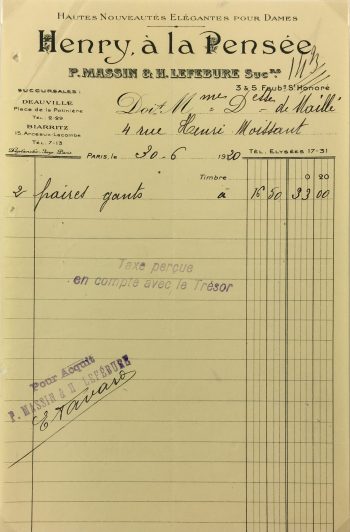 HAUTES NOUVEAUTÉS ELÉGANTES POUR DAMES
HENRY, À LA PENSÉE
P. MASSIN & H. LEFEBURE SUCRS
3 & 5 FAUBG ST HONORÉ
SUCCURSALES:
DEAUVILLE
Place de la Potinière
TÉL: 2-29
BIARRITZ
15, Arceaux-Lacombe
TÉL. 7-13
Doit Mme Desse de Maillé
4 rue Henri Moissant
PARIS, le 30-6 1920
TÉL. ELYSÉES 17-31
Timbre 0 20
2 paires gants à 16 50 33 00
Taxe perçue
en compte avec le Trésor
Pour Acquit
P. MASSIN & H. LEFÉBURE